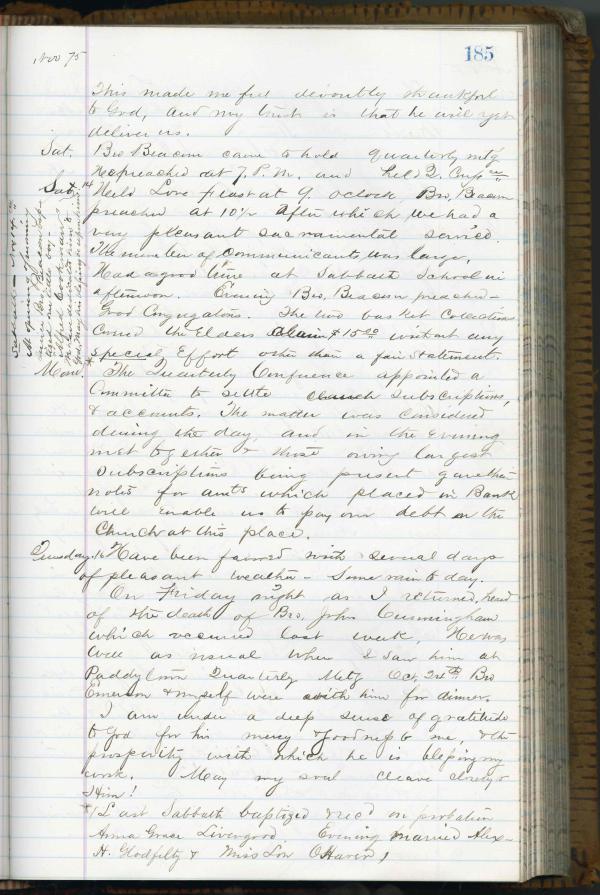 Nov 75
185
This made me feel devoutly thankful
to God, and my trust is that he will yet
deliver us.
Sat. Bro Beacom came to hold quarterly mtg
He preached at 7. P.M. and held 2. Conf
Sab. 14 Held Love feast at 9. oclock, Bro, Beacom
preached at 10½ after which we had a
very pleasant sacramental service.
The number of communicants was large,
Had a good time at Sabbath School in
afternoon. Evening Bro, Beacom preached -
Good Congregations. The two basket Collections
Covered the Elders claim $15.00 without any
special Effort other than a fair statement.
Mon. * The Quarterly Conference appointed a
Committee to settle church subscriptions,
& accounts. The matter was considered
during the day, and in the Evening
met together & those owing largest
subscriptions being present gave their
notes for amts which placed in Bank
will enable us to pay our debt on the
Church at this place.
Tuesday. 16 Have been favored with several days
of pleasant weather - Some rain to day.
On Friday night as I returned, heard
of the death of Bro. John Cunningham
which occurred last week, He was
well as usual when I saw him at
Paddytown Quarterly Mtg Oct, 24th Bro
Emerson & myself were with him for dinner.
I am under a deep sense of gratitude
to God for his mercy & goodness to me, & the
prosperity with which he is blessing my
work. May my soul cleave closely to
Him!
* Last Sabbath baptized & rec'd on probation
Anna Grace Livengood Evening married Alex-
H. Glodfelty & Miss Lon OHaver,